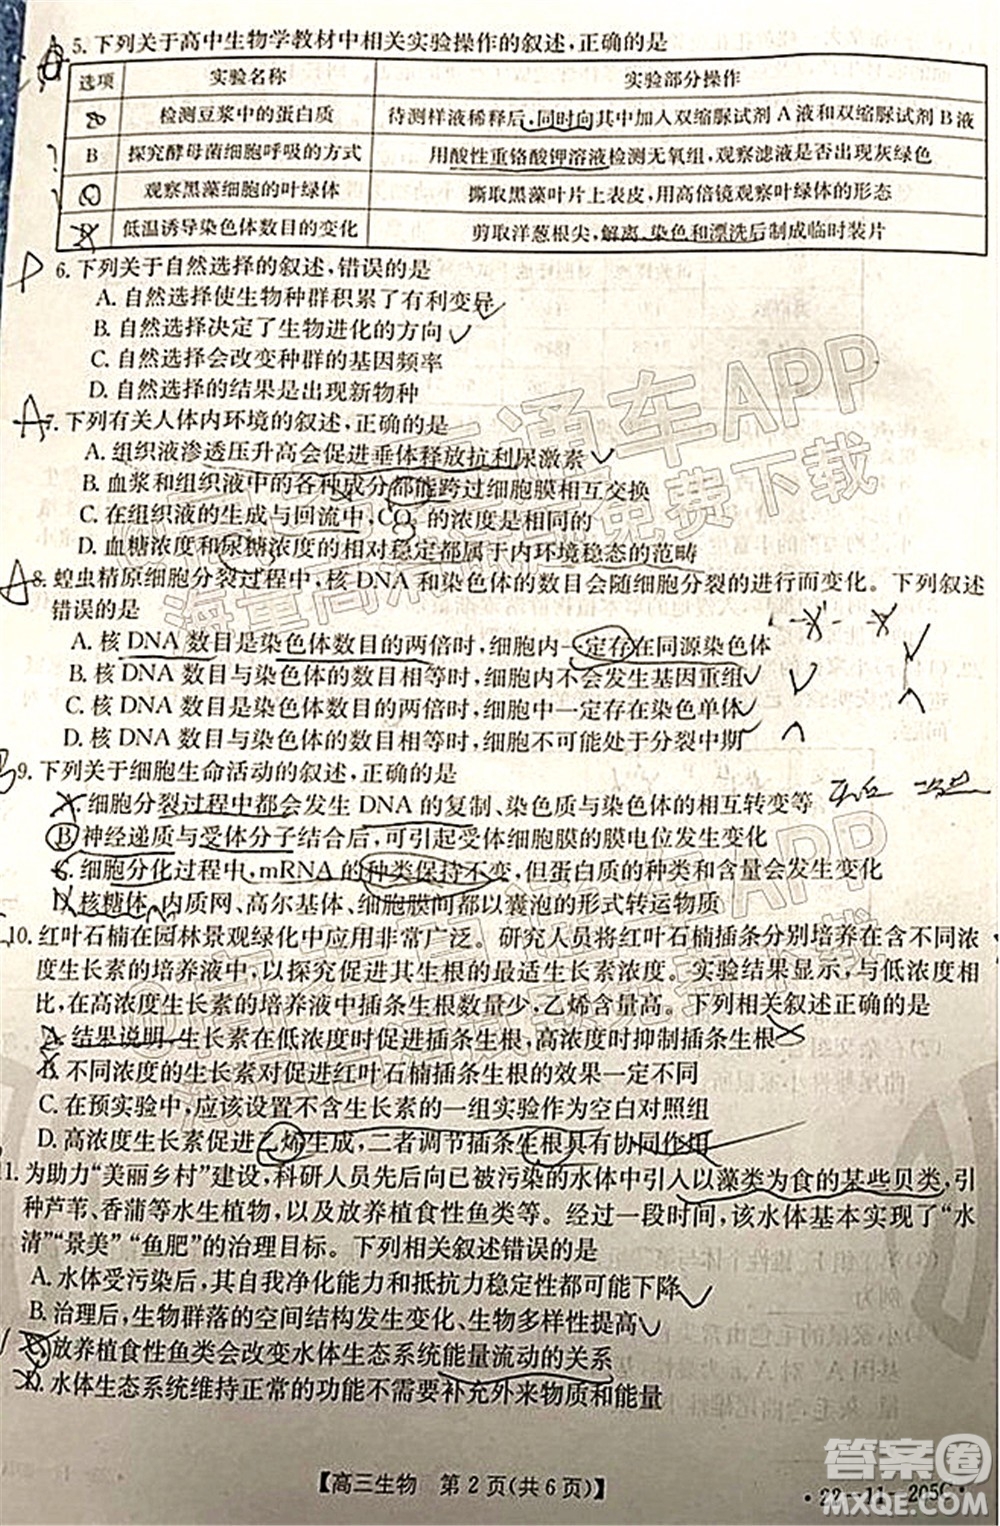 5. 下列关于高中生物学教材中相关实验操作的叙述,正确的是
选项 实验名称 实验部分操作
检测豆浆中的蛋白质 待测样液稀释后,同时向其中加入双缩脲试剂A液和双缩脲试剂B液
B 探究酵母菌细胞呼吸的方式 用酸性重铬酸钾溶液检测无氧组,观察滤液是否出现灰绿色
观察黑藻细胞的叶绿体 撕取黑藻叶片上表皮,用高倍镜观察叶绿体的形态
低温诱导染色体数目的变化 剪取洋葱根尖,解离、染色和漂洗后制成临时装片
6. 下列关于自然选择的叙述,错误的是
A. 自然选择使生物种群积累了有利变异
B. 自然选择决定了生物进化的方向
C. 自然选择会改变种群的基因频率
D. 自然选择的结果是出现新物种
A 7. 下列有关人体内环境的叙述,正确的是
A. 组织液渗透压升高会促进垂体释放抗利尿激素
B. 血浆和组织液中的各种成分都能跨过细胞膜相互交换
C. 在组织液的生成与回流中,CO₂的浓度是相同的
D. 血糖浓度和尿糖浓度的相对稳定都属于内环境稳态的范畴
A 8. 蝗虫精原细胞分裂过程中,核DNA和染色体的数目会随细胞分裂的进行而变化。下列叙述
错误的是
A. 核DNA数目是染色体数目的两倍时,细胞内一定存在同源染色体
B. 核DNA数目与染色体的数目相等时,细胞内不会发生基因重组
C. 核DNA数目是染色体数目的两倍时,细胞中一定存在染色单体
D. 核DNA数目与染色体的数目相等时,细胞不可能处于分裂中期
B 9. 下列关于细胞生命活动的叙述,正确的是
A. 细胞分裂过程中都会发生DNA的复制、染色质与染色体的相互转变等
B. 神经递质与受体分子结合后,可引起受体细胞膜的膜电位发生变化
C. 细胞分化过程中,mRNA的种类保持不变,但蛋白质的种类和含量会发生变化
D. 核糖体、内质网、高尔基体、细胞膜间都以囊泡的形式转运物质
10. 红叶石楠在园林景观绿化中应用非常广泛。研究人员将红叶石楠插条分别培养在含不同浓
度生长素的培养液中,以探究促进其生根的最适生长素浓度。实验结果显示,与低浓度相
比,在高浓度生长素的培养液中插条生根数量少,乙烯含量高。下列相关叙述正确的是
A. 结果说明,生长素在低浓度时促进插条生根,高浓度时抑制插条生根
B. 不同浓度的生长素对红叶石楠插条生根的效果一定不同
C. 在预实验中,应该设置不含生长素的一组实验作为空白对照组
D. 高浓度生长素促进乙烯生成,二者调节插条生根具有协同作用
11. 为助力“美丽乡村”建设,科研人员先后向已被污染的水体中引入以藻类为食的某些贝类,引
种芦苇、香蒲等水生植物,以及放养植食性鱼类等。经过一段时间,该水体基本实现了“水
清”“景美”“鱼肥”的治理目标。下列相关叙述错误的是
A. 水体受污染后,其自我净化能力和抵抗力稳定性都可能下降
B. 治理后,生物群落的空间结构发生变化、生物多样性提高
C. 放养植食性鱼类会改变水体生态系统能量流动的关系
D. 水体生态系统维持正常的功能不需要补充外来物质和能量
【高三生物 第2页(共6页)】
·22-11-205C·
答案圈
MXQE.COM